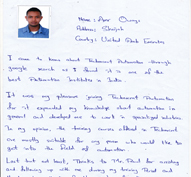 Name: Amr
Address: Sharjah
Country: United Arab Emirates
I came to know about Technocrat Automation through
google search as I found it is one of the
best Automation Institutes in India.
It was my pleasure joining Technocrat Automation
for it expanded my knowledge about automation in
general and developed me to work in specialized
In my opinion, the training courses offered in Technocrat
are mostly suitable for any person who would like to
get into the field of automation.
Last but not least, Thanks to Mr. for
and following up with me during my training Period and